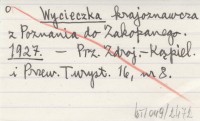 Wycieczka krajoznawcza
z Poznania do Zakopanego.
1927. — Prz. Zdroj.-Kąpiel.
i Przew. Turyst. 16, nr 8.